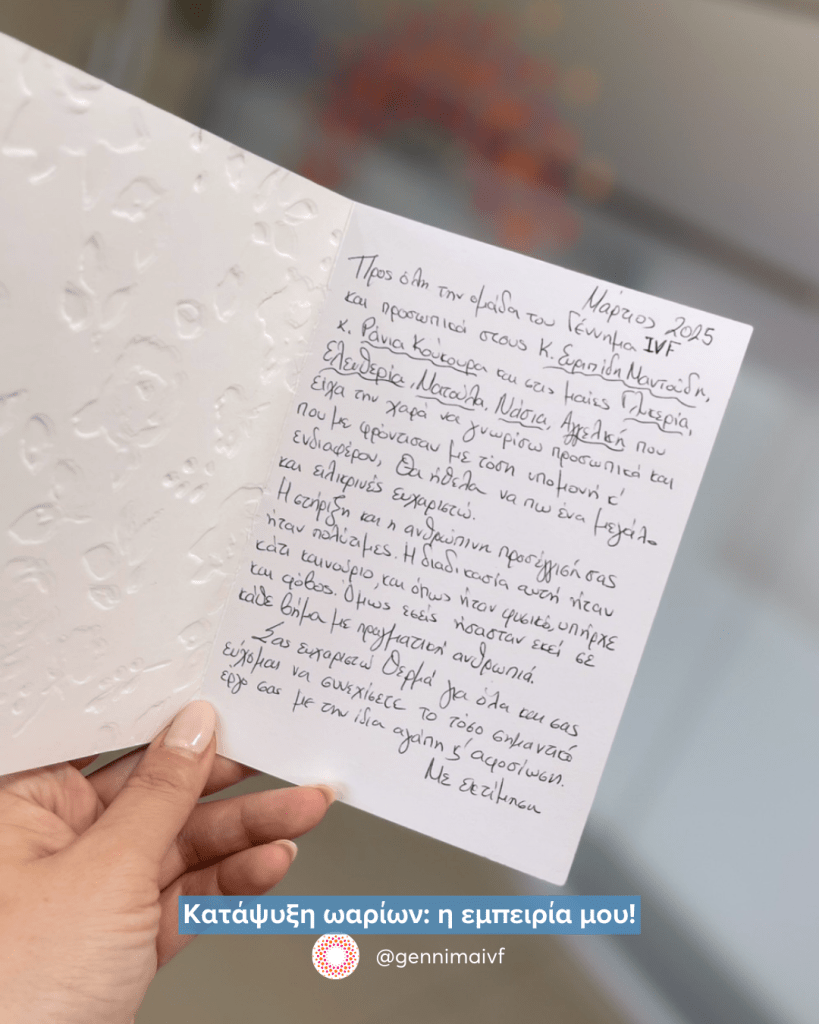 Μάρτιος 2025
Προς όλη την ομάδα του Γέννημα IVF
και προσωπικά στους Κ. Ευριπίδη Μαντούδη,
κ. Ράνια Κούκουρα και στις μαίες Γλυκερία,
Ελευθερία, Ματούλα, Νάσια, Αγγελική που
είχα την χαρά να γνωρίσω προσωπικά και
που με φρόντισαν με τόση υπομονή κ'
ενδιαφέρον, Θα ήθελα να πω ένα μεγάλο
και ειλικρινές ευχαριστώ.
Η στήριξη και η ανθρώπινη προσέγγισή σας
ήταν πολύτιμες. Η διαδικασία αυτή ήταν
κάτι καινούριο, και όπως ήταν φυσικό, υπήρχε
και φόβος. Όμως εσείς ήσασταν εκεί σε
κάθε βήμα με πραγματική ανθρωπιά.
Σας ευχαριστώ θερμά για όλα και σας
εύχομαι να συνεχίσετε το τόσο σημαντικό
έργο σας με την ίδια αγάπη κ' αφοσίωση.
Με εκτίμηση
Κατάψυξη ωαρίων: η εμπειρία μου!
@gennimaivf